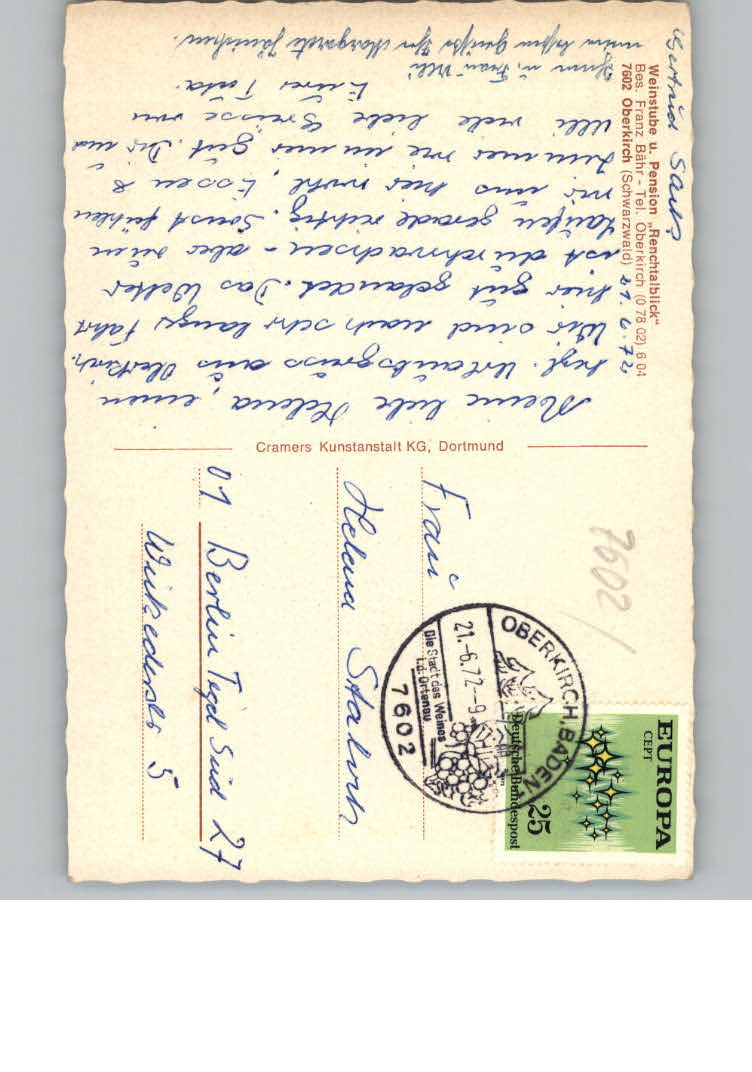 Weinstube u. Pension „Renchtalblick“
Bes. Franz Bähr - Tel. Oberkirch (0 78 02) 6 04
7602 Oberkirch (Schwarzwald) 21.6.72
Meine liebe Helena, einen
herzl. Urlaubsgruss aus Oberkirch.
Wir sind nach sehr langer Fahrt
hier gut gelandet. Das Wetter
ist durchwachsen - aber zum
Laufen gerade richtig. Sonst fühlen
wir uns hier wohl, Essen &
Zimmer wie immer gut. Dir und
Uli viele liebe Grüsse von
Eurer
Ihnen u. Frau Uli
Ihre Margarete
Gertrud
Cramers Kunstanstalt KG, Dortmund
Frau
Helena
01 Berlin Tegel Süd 27
5
7602
OBERKIRCH, BADEN
21.-6.72--9
Die Stadt des Weines
i.d. Ortenau
7602
EUROPA
CEPT
Deutsche Bundespost
25